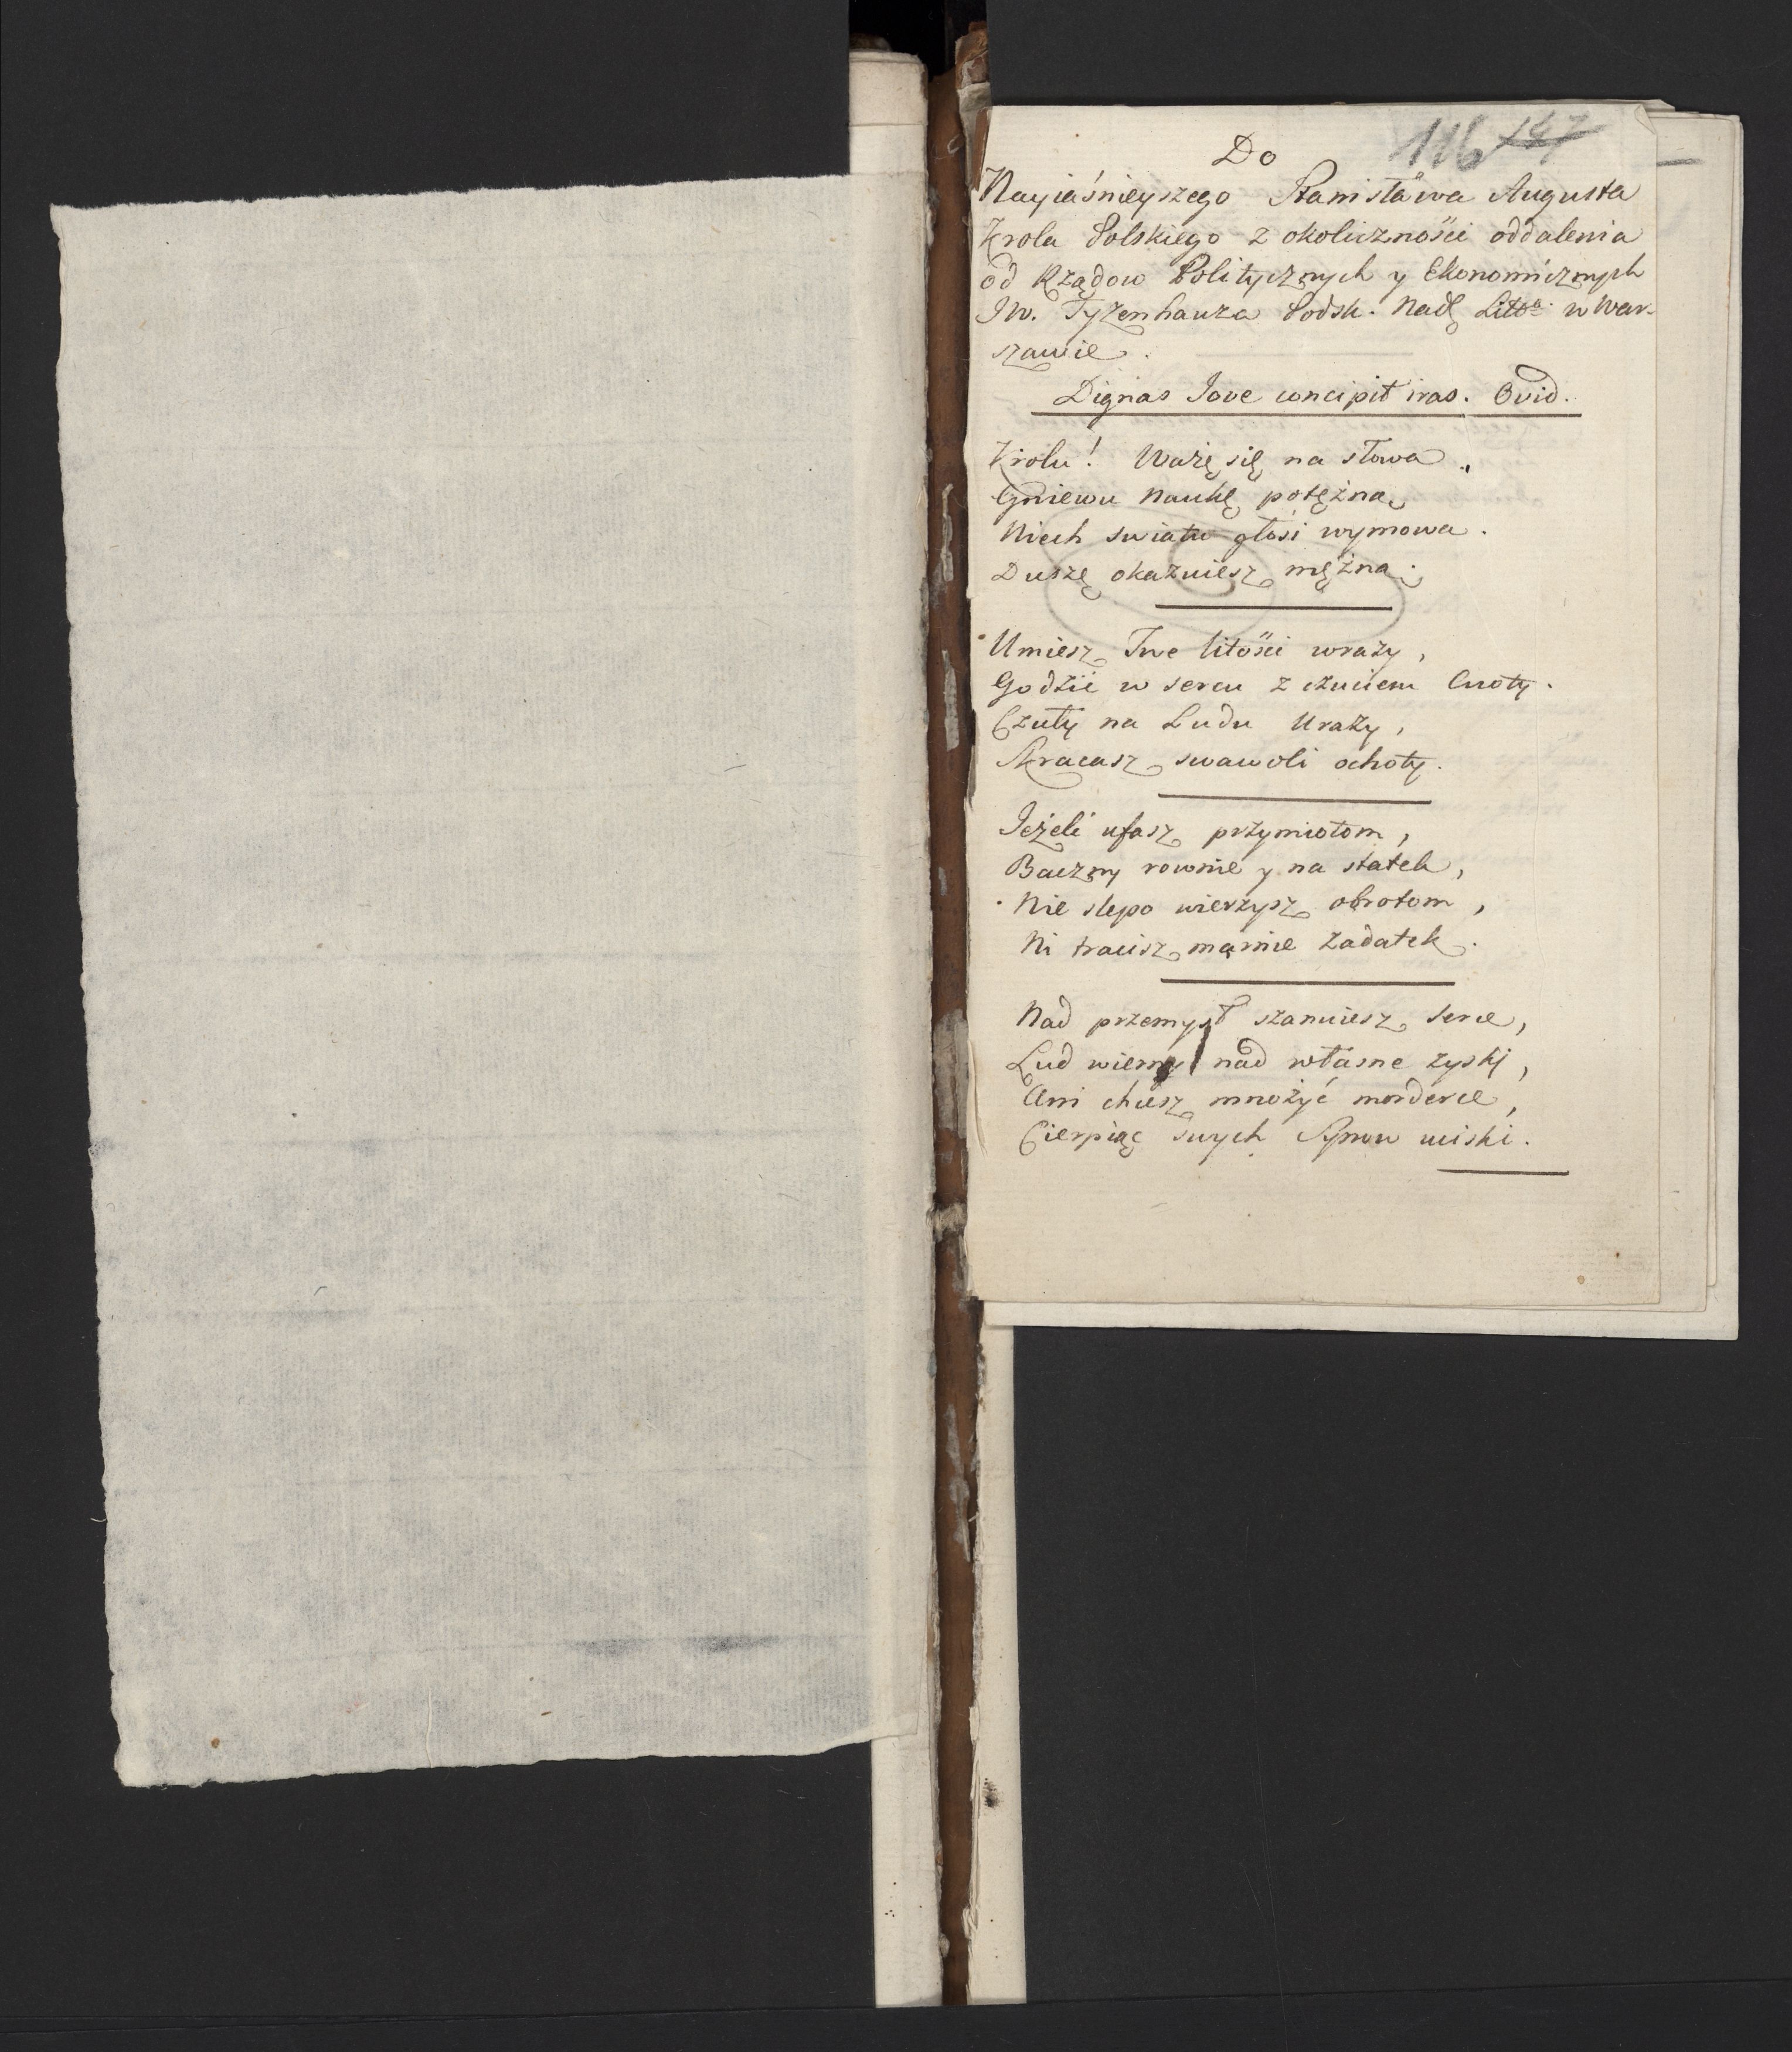 116 147
Do
Nayiaśnieyszego Stanisława Augusta
Krola Polskiego z okoliczności oddalenia
od Rządow Politycznych y Ekonomicznych
JW. Tyzenhauza Podsk. Nadᵍ Littᵒ w War-
szawie.
Dignas Jove concipit iras. Ovid.
Krolu! Ważę się na słowa,
Gniewu naukę potężną,
Niech swiatu głosi wymowa.
Duszę okazuiesz mężną.
Umiesz Twe litości wrazy,
Godzić w sercu z czuciem Cnoty.
Czuły na Ludu Urazy,
Skracasz swawoli ochoty.
Jeżeli ufasz przymiotom,
Baczny rownie y na statek,
Nie slepo wierzysz obrotom,
Ni tracisz marnie zadatek.
Nad przemysł szanuiesz serce,
Lud wierny nad własne zyski,
Ani chcesz mnożyć morderce,
Cierpiąc swych Synow uciski.